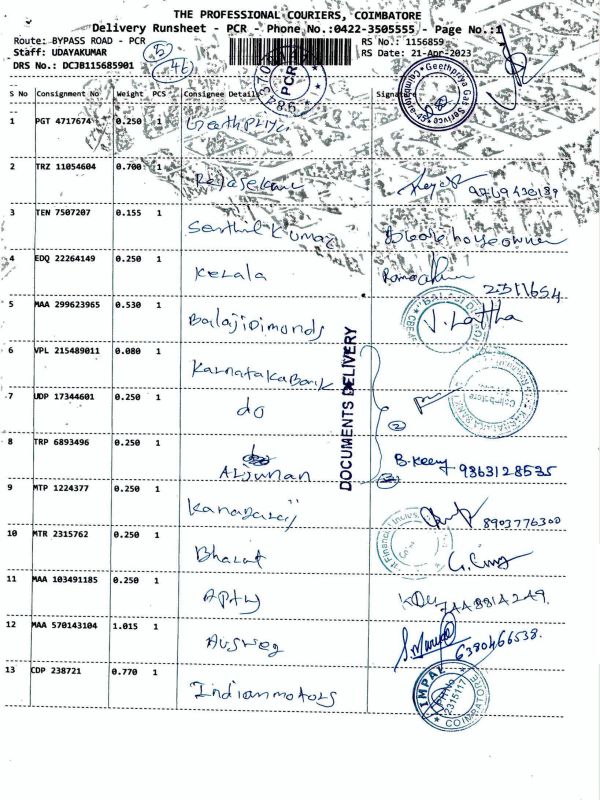 THE PROFESSIONAL COURIERS, COIMBATORE
Delivery Runsheet - PCR - Phone No.:0422-3505555 - Page No.:1
Route: BYPASS ROAD - PCR RS No.: 1156859
Staff: UDAYAKUMAR RS Date: 21-Apr-2023
DRS No.: DCJB115685901
5
46
PCR
Geethpriya Gas Serivce
Coimbatore
S No Consignment No Weight PCS Consignee Details Signature
1 PGT 4717674 0.250 1 Geethpriya
2 TRZ 11054604 0.700 1 Rajasekane
3 TEN 7507207 0.155 1 Senthil Kumar
4 EDQ 22264149 0.250 1 Kerala 2311654
5 MAA 299623965 0.530 1 BalajiDimonds J. Lattha
6 VPL 215489011 0.080 1 Karnataka Bank
DOCUMENTS DELIVERY
7 UDP 17344601 0.250 1 do 2
8 TRP 6893496 0.250 1 Arjunan 9363128535
9 MTP 1224377 0.250 1 8903776300
10 MTR 2315762 0.250 1 Bharat
11 MAA 103491185 0.250 1
12 MAA 570143104 1.015 1 6380466538.
13 CDP 238721 0.770 1 Indianmotors
IMPAL
2315117
COIMBATORE